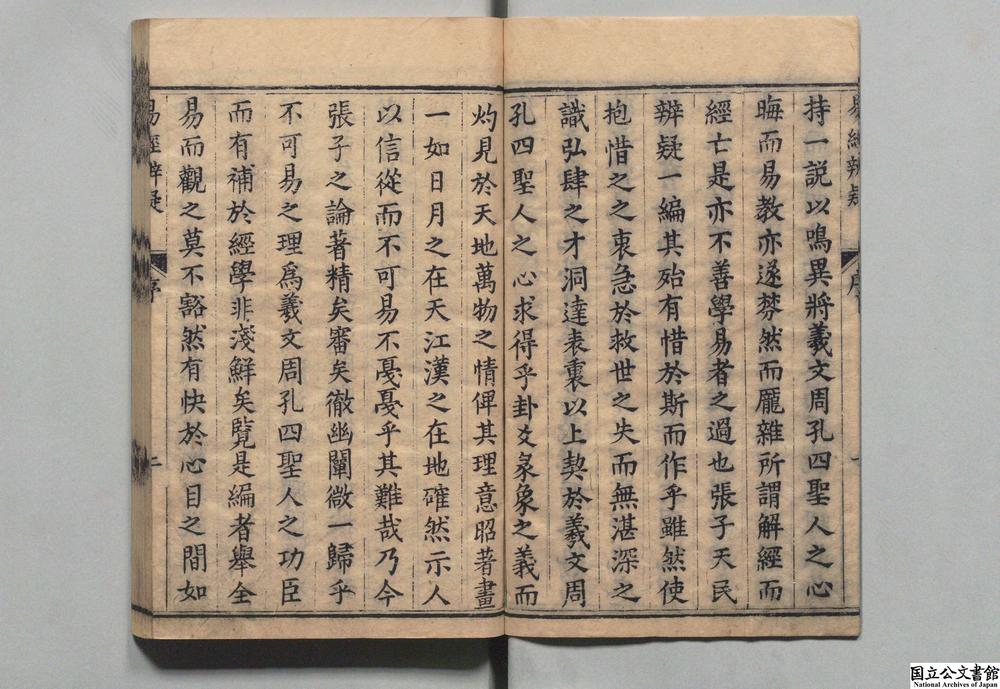 易經辨疑
序
一
持一説以鳴異將羲文周孔四聖人之心
晦而易教亦遂棼然而厖雜所謂解經而
經亡是亦不善學易者之過也張子天民
辨疑一編其殆有惜於斯而作乎雖然使
抱惜之之衷急於救世之失而無湛深之
識弘肆之才洞達表裏以上契於羲文周
孔四聖人之心求得乎卦爻彖象之義而
灼見於天地萬物之情俾其理意昭著晝
一如日月之在天江漢之在地確然示人
以信從而不可易不戞戞乎其難哉乃今
張子之論著精矣審矣徹幽闡微一歸乎
不可易之理爲羲文周孔四聖人之功臣
而有補於經學非淺鮮矣覽是編者舉全
易而觀之莫不豁然有快於心目之間如
易經辨疑
序
二
国立公文書館
National Archives of Japan